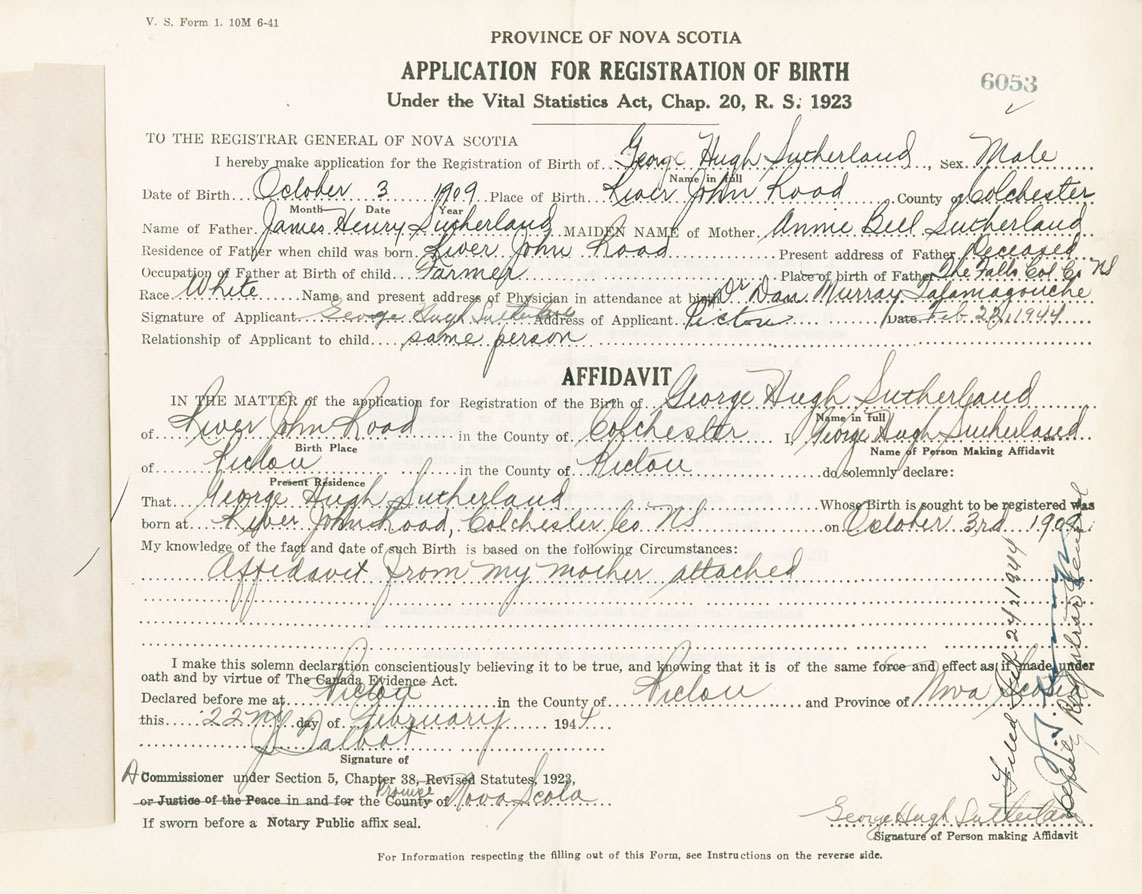 V. S. Form 1. 10M 6-41
PROVINCE OF NOVA SCOTIA
APPLICATION FOR REGISTRATION OF BIRTH
6053
Under the Vital Statistics Act, Chap. 20, R. S. 1923
TO THE REGISTRAR GENERAL OF NOVA SCOTIA
I hereby make application for the Registration of Birth of George Hugh Sutherland, Sex Male
Name in full
Date of Birth October 3 1909 Place of Birth River John Road County of Colchester
Month Date Year
Name of Father James Henry Sutherland MAIDEN NAME of Mother Annie Bell Sutherland
Residence of Father when child was born River John Road Present address of Father Deceased
Occupation of Father at Birth of child Farmer Place of birth of Father The Falls Col Co NS
Race White Name and present address of Physician in attendance at birth Dr Dan Murray Tatamagouche
Signature of Applicant George Hugh Sutherland Address of Applicant Pictou Date Feb 22, 1944
Relationship of Applicant to child same person
AFFIDAVIT
IN THE MATTER of the application for Registration of the Birth of George Hugh Sutherland
Name in full
of River John Road in the County of Colchester I, George Hugh Sutherland
Birth Place Name of Person Making Affidavit
of Pictou in the County of Pictou do solemnly declare:
Present Residence
That George Hugh Sutherland Whose Birth is sought to be registered was
born at River John Road, Colchester Co NS on October 3rd 1909
My knowledge of the fact and date of such Birth is based on the following Circumstances:
Affidavit from my mother attached
I make this solemn declaration conscientiously believing it to be true, and knowing that it is of the same force and effect as if made under
oath and by virtue of The Canada Evidence Act.
Declared before me at Pictou in the County of Pictou and Province of Nova Scotia
this 22nd day of February 1944
Talbot
Signature of
A Commissioner under Section 5, Chapter 38, Revised Statutes, 1923,
or Justice of the Peace in and for the County of Province Nova Scotia
If sworn before a Notary Public affix seal.
George Hugh Sutherland
Signature of Person making Affidavit
For Information respecting the filling out of this Form, see Instructions on the reverse side.
Filed Feb 24 1944
Deputy Registrar General